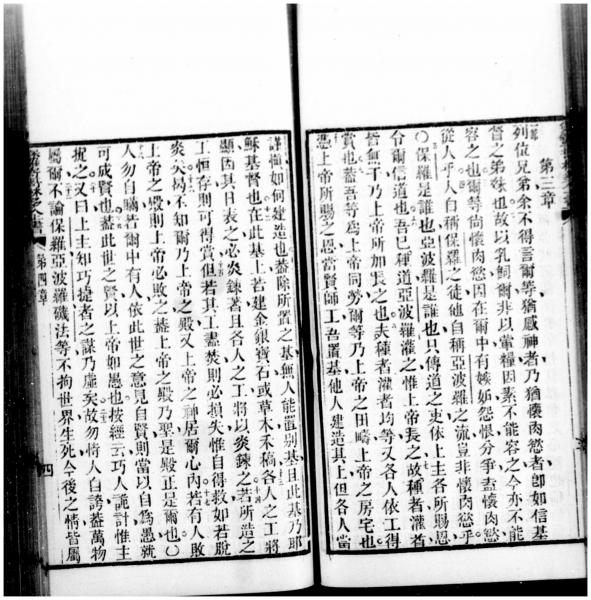 第三章
列位兄弟余不得言爾等猶感神者乃猶懷肉慾者卽如信基
督之弟妹也故以乳飼爾非以黨糧因素不能容之今亦不能
容之也爾等尙懷肉慾因在爾中有嫉妬怨恨分爭盍懷肉慾
從人乎人自稱保羅之徒他自稱亞波羅之流豈非懷肉慾乎
〇保羅是誰也亞波羅是誰也只傳道之吏依上主各所賜恩
令爾信道也吾已種道亞波羅灌之惟上帝長之故種者灌者
皆無干乃上帝所加長之也夫種者灌者均等又各人依工得
賞也蓋吾等爲上帝同勞爾等乃上帝之田疇上帝之房宅也
憑上帝所賜之恩當賢師工吾置基他人建造其上但各人當
謹愼如何建造也蓋除所置之基無人能置别基且此基乃耶
穌基督也在此基上若建金銀寶石或草木禾稿各人之工將
顯因其日表之必炎鍊著且各人之工將以炎鍊之若所造之
工恒存則可得賞但若其工盡焚則必損失惟自得救如若脫
炎矣曷不知爾乃上帝之殿又上帝之神居爾心內若有人敗
上帝之殿則上帝必敗之蓋上帝之殿乃聖是殿正是爾也〇
人勿自瞞若爾中有人依此世之意見自賢則當以自爲愚就
可成賢也蓋此世之賢以上帝如愚也按經云巧人詭計惟主
扼之又曰上主知巧捷者之謀乃虛矣故勿恃人自誇蓋萬物
屬爾不論保羅亞波羅磯法等不拘世界生死今後之情皆屬
第四章
四